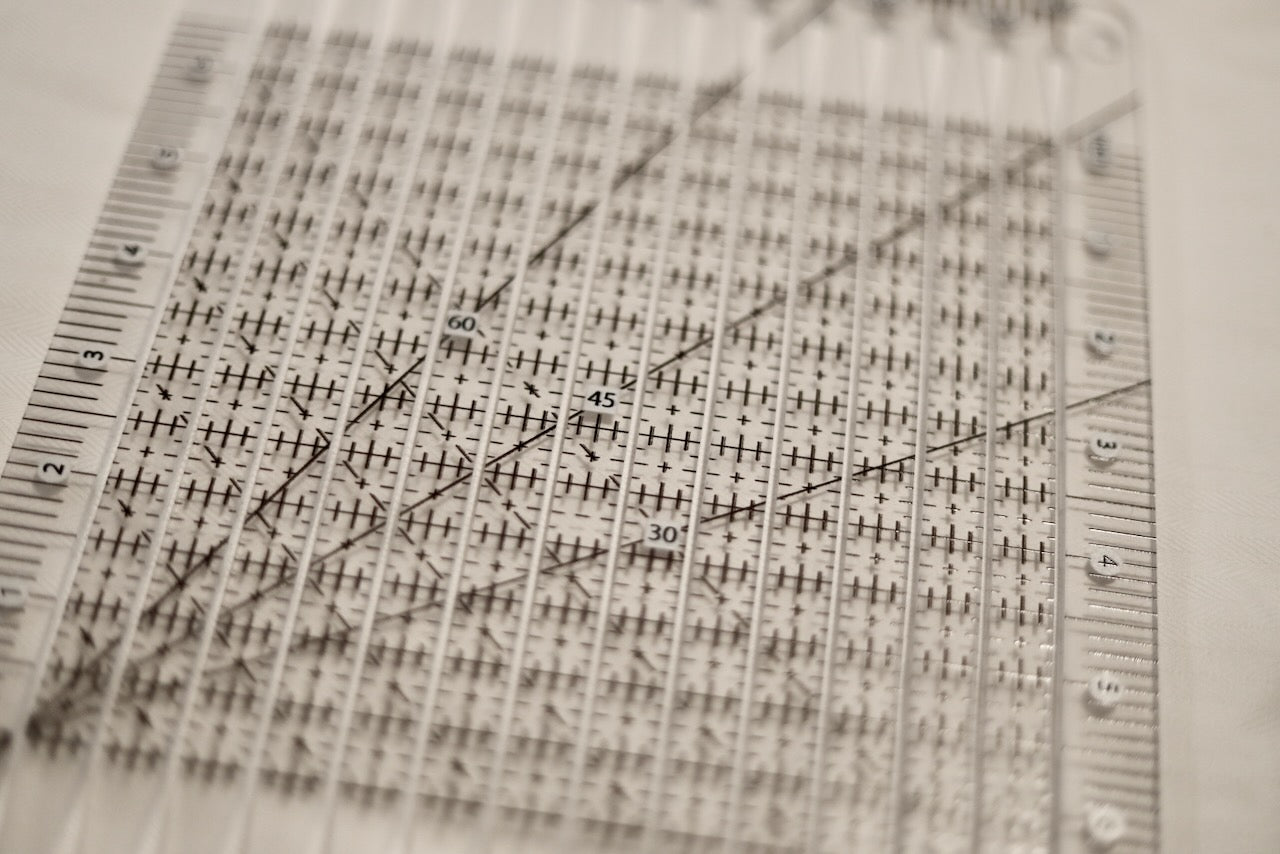 4
3
2
1
60
45
30
2
3
4
5